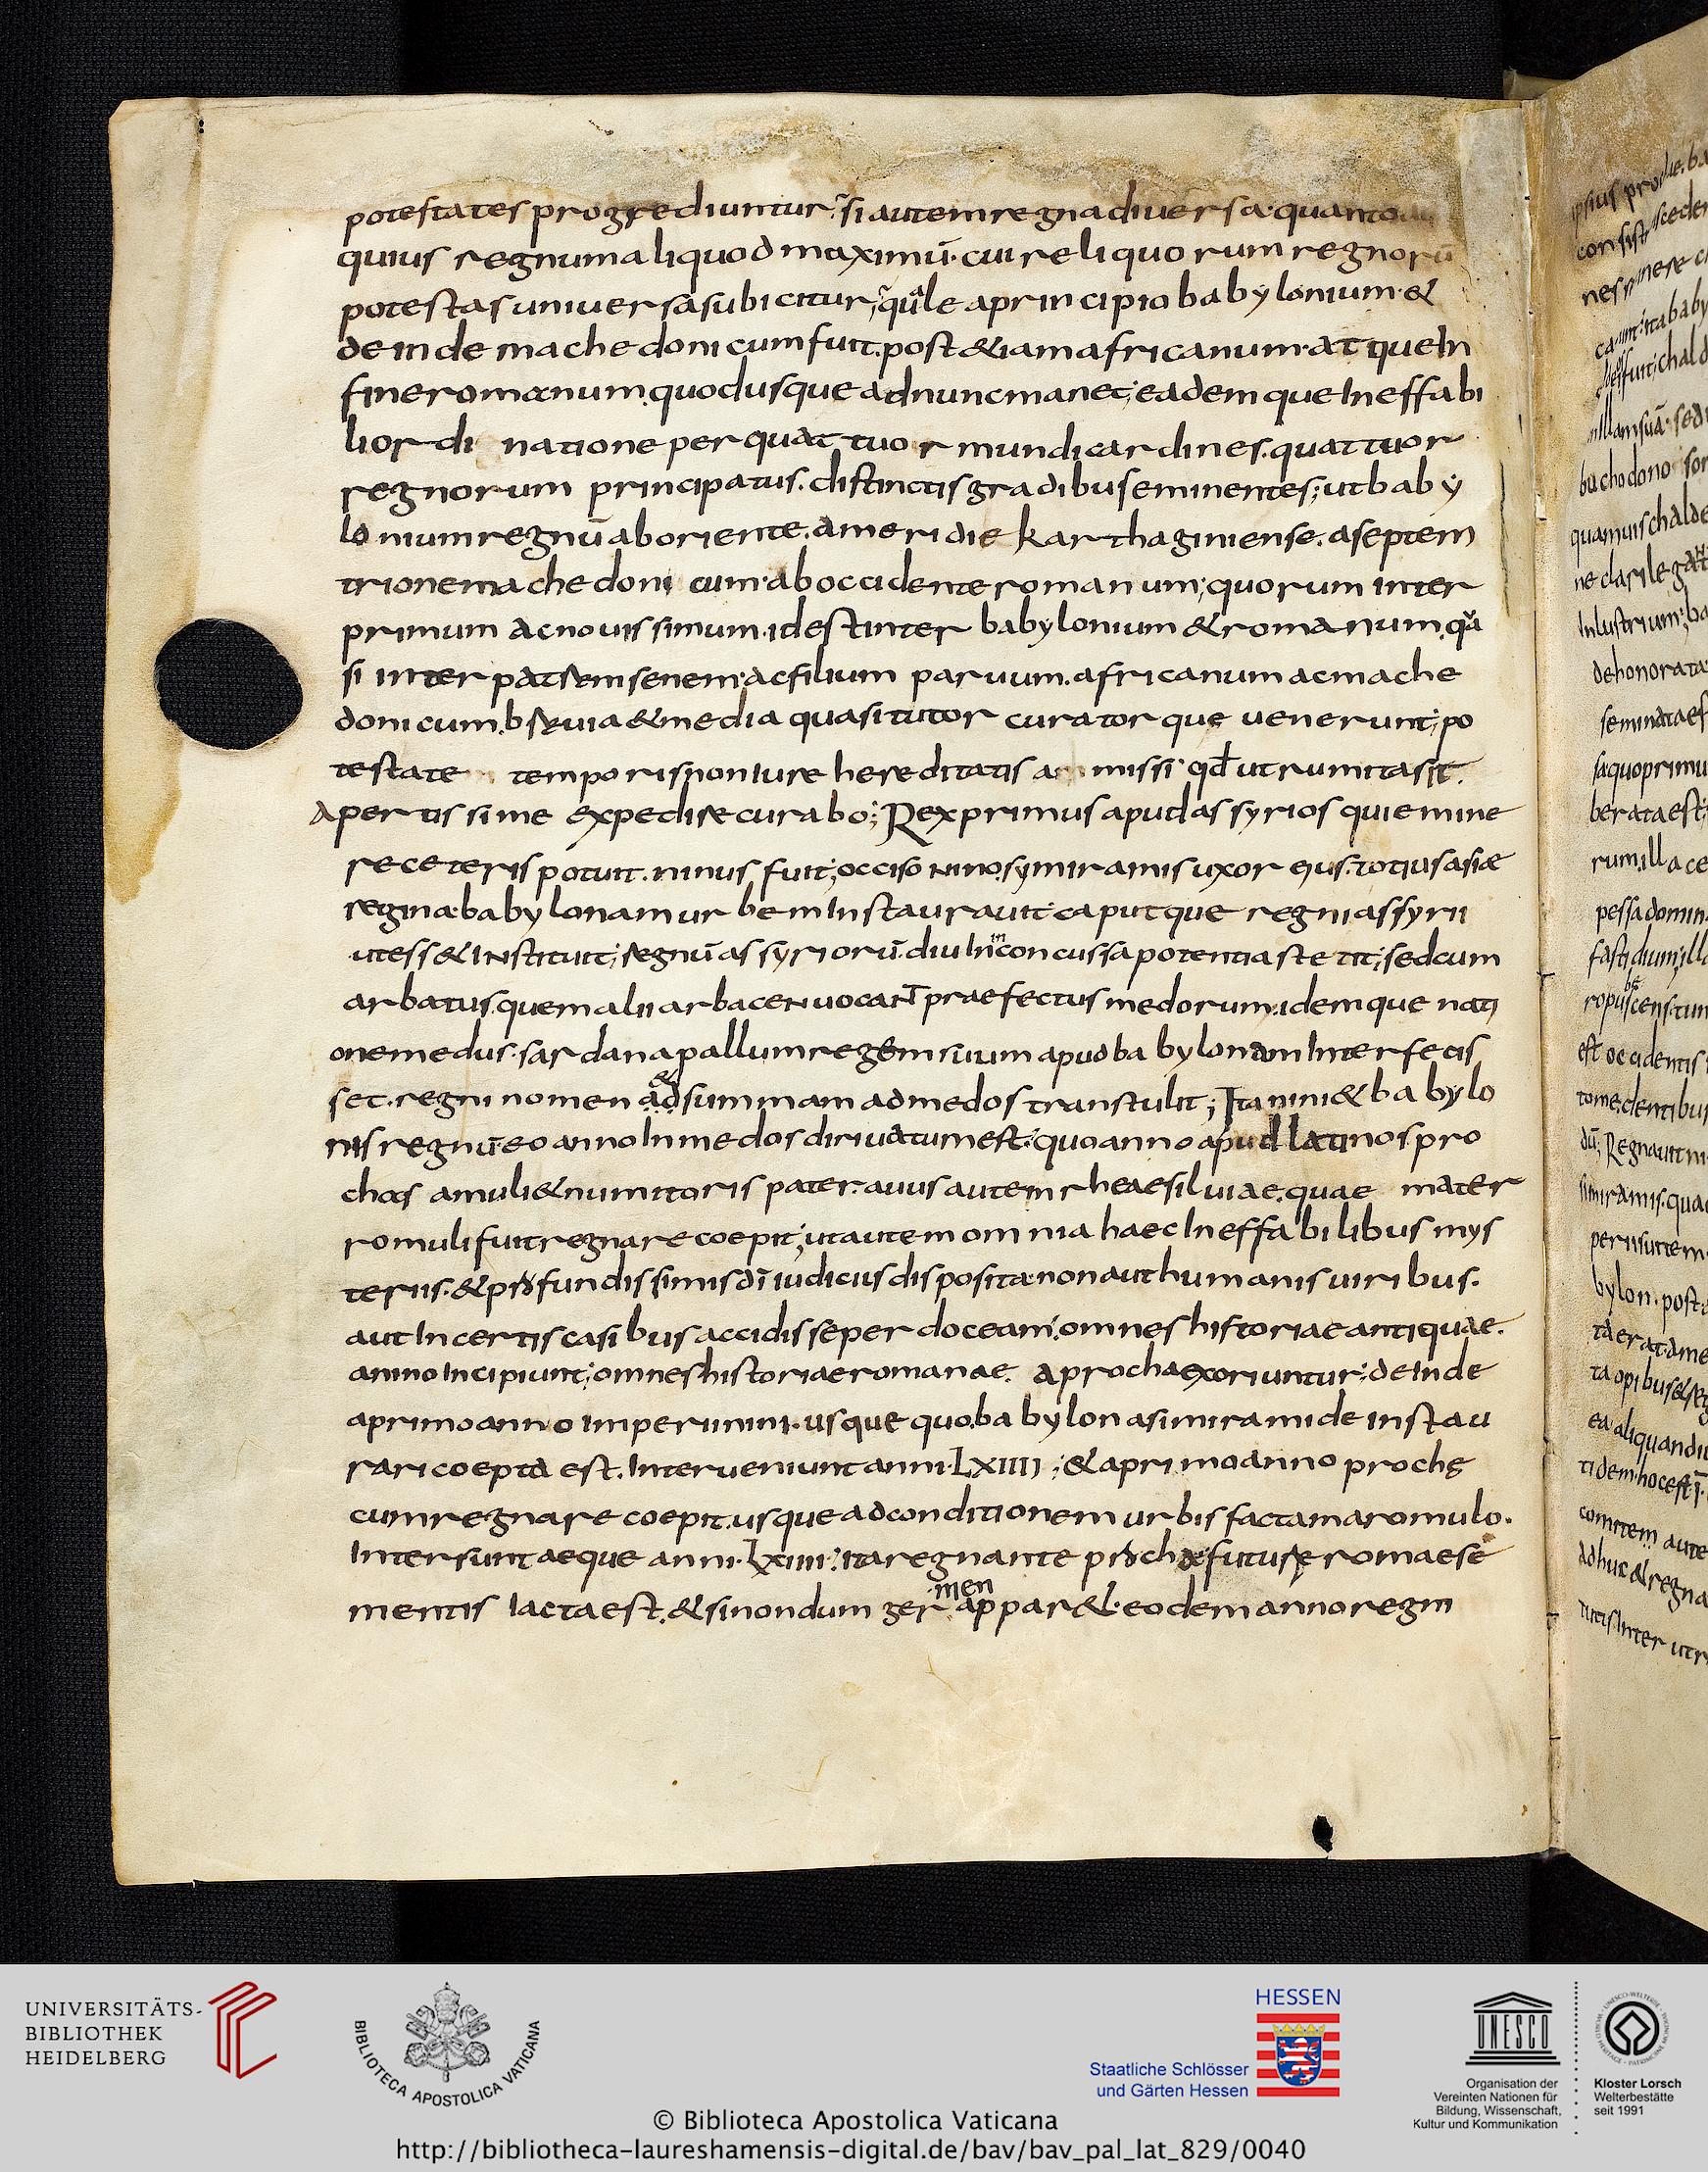 potestates progrediuntur; si autem regna diuersa. quanto
quius regnum aliquod maximū. cui reliquorum regnorū
potestas uniuersa subicitur; quale a principio babylonium. &
deinde machedonicum fuit. post &iam africanum. atque In
fine romanum. quod usque ad nunc manet; eademque Ineffabi
lior di natione per quattuor mundi cardines. quattuor
regnorum principatus. distinctis gradibus eminentes; ut baby
lonium regnū ab oriente. a meridie karthaginiense. a septem
trione machedonicum. ab occidente romanum; quorum inter
primum ac nouissimum. id est inter babylonium & romanum. qua
si inter patrem senem. ac filium paruum. africanum ac mache
donicum. breuia & media quasi tutor curatorque uenerunt; po
testate temporis non Iure hereditatis a missi. qđ utrum ita sit.
Apertissime expedire curabo; Rex primus apud assyrios qui emine
re ceteris potuit. ninus fuit; occiso nino. symiramis uxor eius. totius asiae
regina. babylonam urbem Instaurauit. caputque regni assyrii
ut ess& INstituit; regnū assyriorū. diu In inconcussa potentia stetit; sed cum
arbatus. quem alii arbacen uocaNT praefectus medorum. idemque nati
one medus. sardanapallum regem suum apud babylonam Interfecis
set. regni nomen & ad summam ad medos transtulit; Ita nini & babylo
nis regnū. eo anno In medos diriuatum est. quo anno apud latinos pro
chas amuli & numitoris pater. auus autem rheae siluiae. quae mater
romuli fuit regnare coepit; ut autem omnia haec Ineffabilibus mys
teriis. & profundissimis dī iudiciis disposita. non aut humanis uiribus.
aut Incertis casibus accidisse perdoceam. omnes historiae antiquae.
a nino Incipiunt; omnes historiae romanae. a procha exoriuntur; deInde
a primo anno imperii nini. usque quo. babylon a simiramide instau
rari coepta est. Interueniunt anni. LXIIII; & a primo anno prochę
cum regnare coepit. usque ad conditionem urbis factam a romulo.
Intersunt aeque anni. Lxiiii. ita regnante procha. futurę romae se
mentis Iacta est. & si nondum germen appar&. eodem anno regni
UNIVERSITÄTS-
BIBLIOTHEK
HEIDELBERG
BIBLIOTECA APOSTOLICA VATICANA
HESSEN
Staatliche Schlösser
und Gärten Hessen
UNESCO
Organisation der
Vereinten Nationen für
Bildung, Wissenschaft,
Kultur und Kommunikation
Kloster Lorsch
Welterbestätte
seit 1991
© Biblioteca Apostolica Vaticana
http://bibliotheca-laureshamensis-digital.de/bav/bav_pal_lat_829/0040